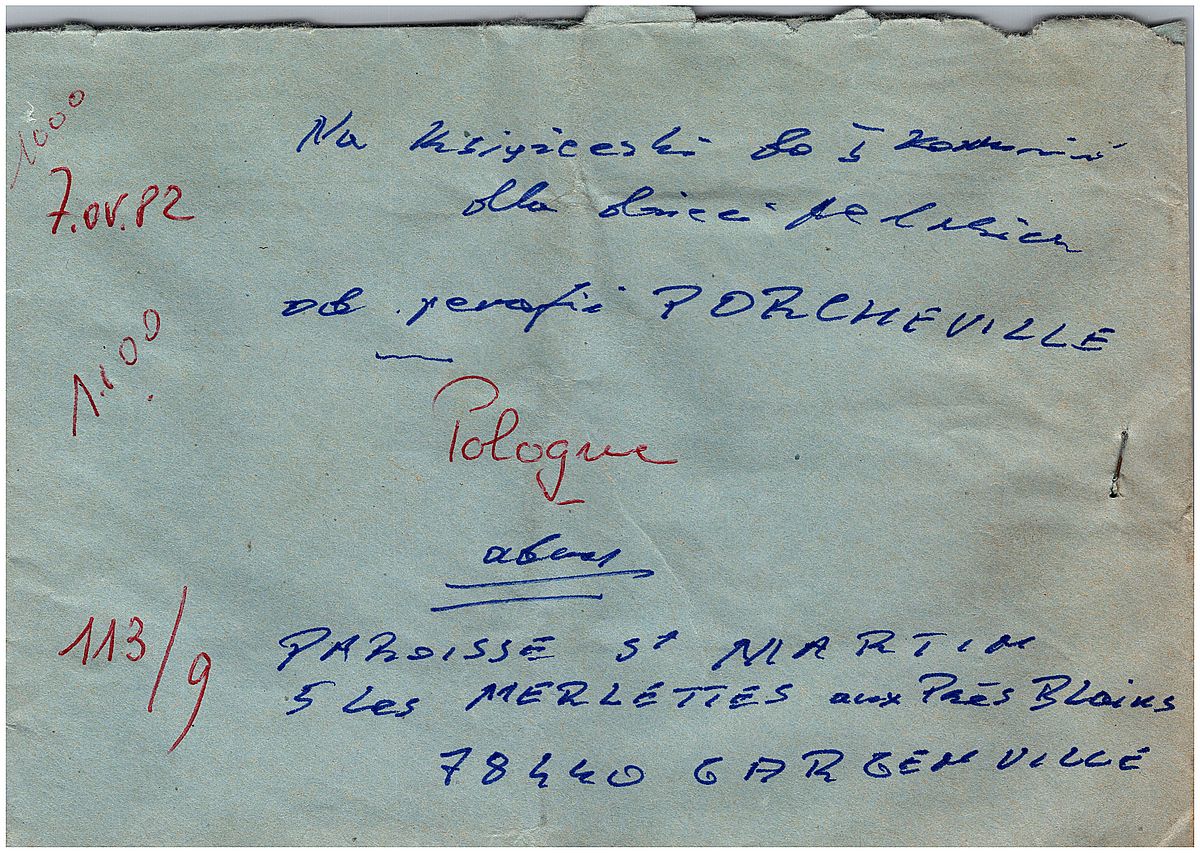 1000
Na książeczki do I Komunii
7.IV.82
dla dzieci polskich
od parafii PORCHEVILLE
1.100
Pologne
113/9
PAROISSE St MARTIN
5 Les MERLETTES aux Prés BLAINS
78440 GARGENVILLE